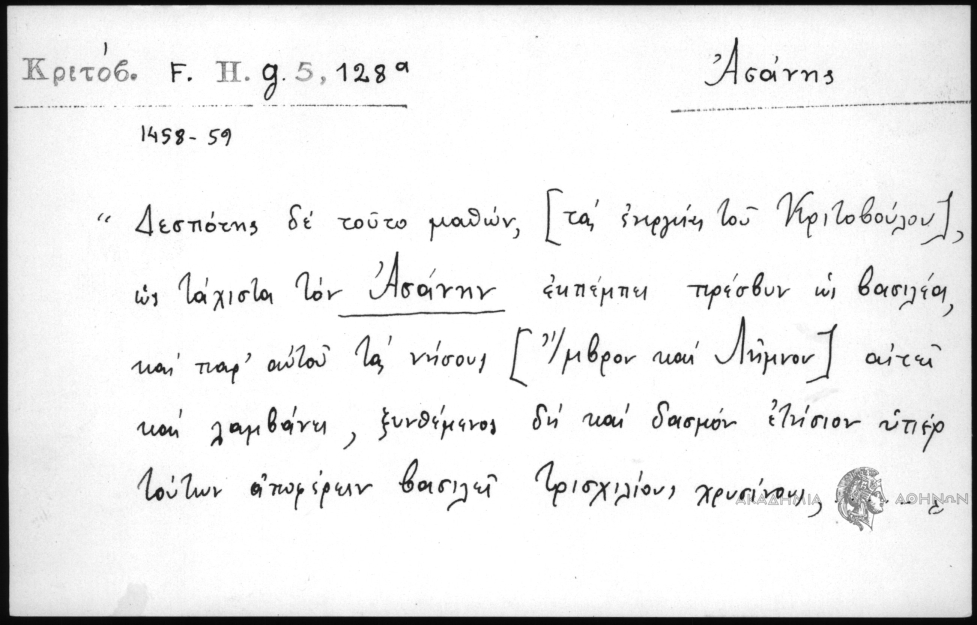 Κριτόβ. F. H. g. 5, 128ᵃ
Ἀσάνης
1458-59
“ Δεσπότης δέ τοῦτο μαθών, [τάς ἐνεργείας τοῦ Κριτοβούλου],
ὡς τάχιστα τόν Ἀσάνην ἐκπέμπει πρέσβυν ὡς βασιλέα,
καί παρ' αὐτοῦ τάς νήσους [Ἴμβρον καί Λῆμνον] αἰτεῖ
καί λαμβάνει, ξυνθέμενος δή καί δασμόν ἐτήσιον ὑπέρ
τούτων ἀποφέρειν βασιλεῖ τρισχιλίους χρυσίνους,
ΑΚΑΔΗΜΙΑ ΑΘΗΝΩΝ